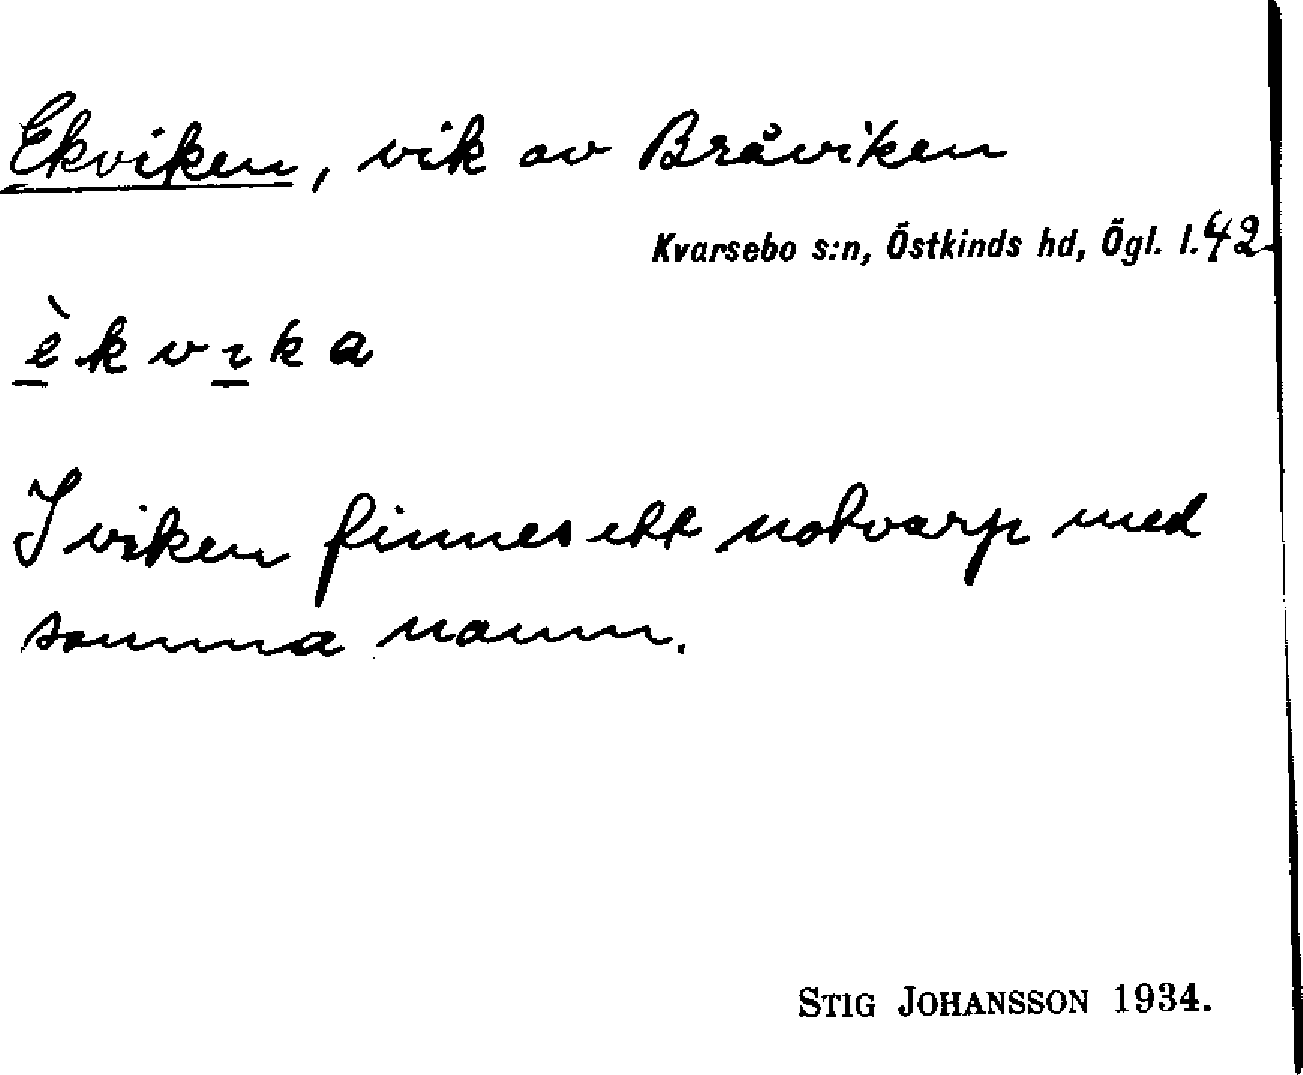 Ekviken, vik av Bråviken
Kvarsebo s:n, Östkinds hd, Ögl. l. 42
è k v ɩ k a
I viken finnes ett notvarp med
samma namn.
STIG JOHANSSON 1934.